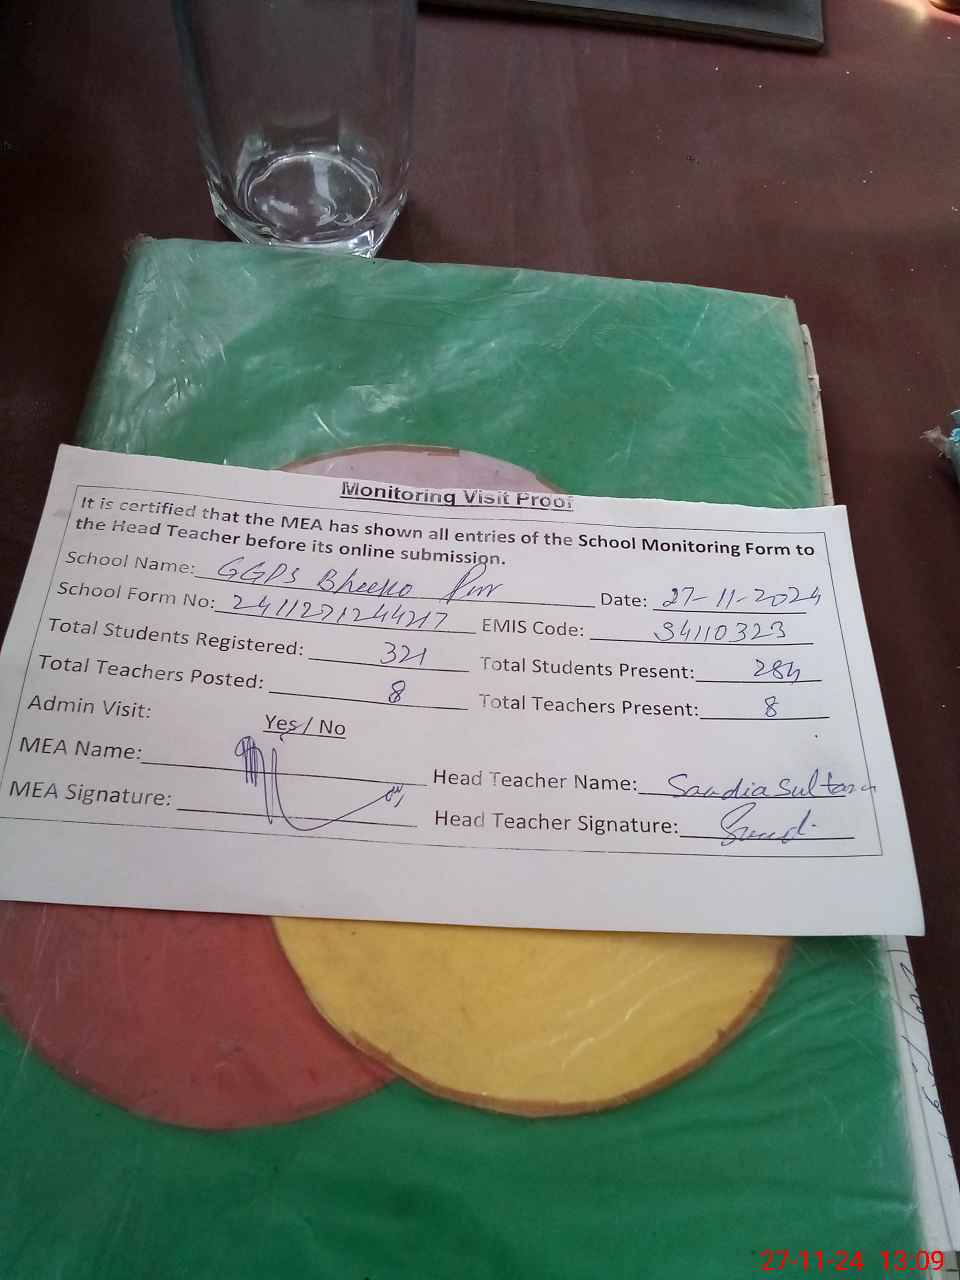 Monitoring Visit Proof
It is certified that the MEA has shown all entries of the School Monitoring Form to
the Head Teacher before its online submission.
School Name: GGPS Bheeko Pur Date: 27-11-2024
School Form No: 2411271244217 EMIS Code: 34110323
Total Students Registered: 321 Total Students Present: 284
Total Teachers Posted: 8 Total Teachers Present: 8
Admin Visit: Yes / No
MEA Name: Head Teacher Name: Saadia Sultana
MEA Signature: Head Teacher Signature:
27-11-24 13:09